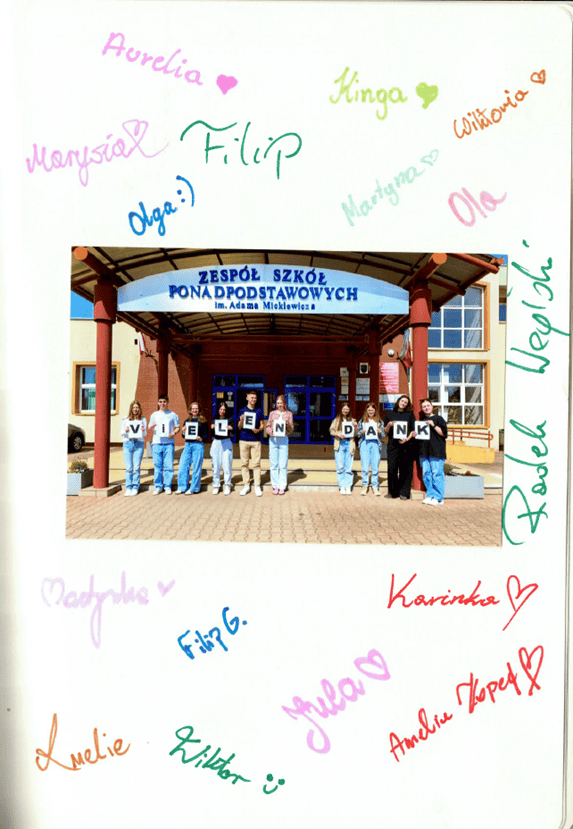 Aurelia
Kinga
Wiktoria
Marysia
Filip
Martyna
Olga :)
Ola
ZESPÓŁ SZKÓŁ
PONADPODSTAWOWYCH
im. Adama Mickiewicza
VIELEN DANK
Radek
Karinka
Filip G.
Jula
Amelia
Amelie
Wiktor